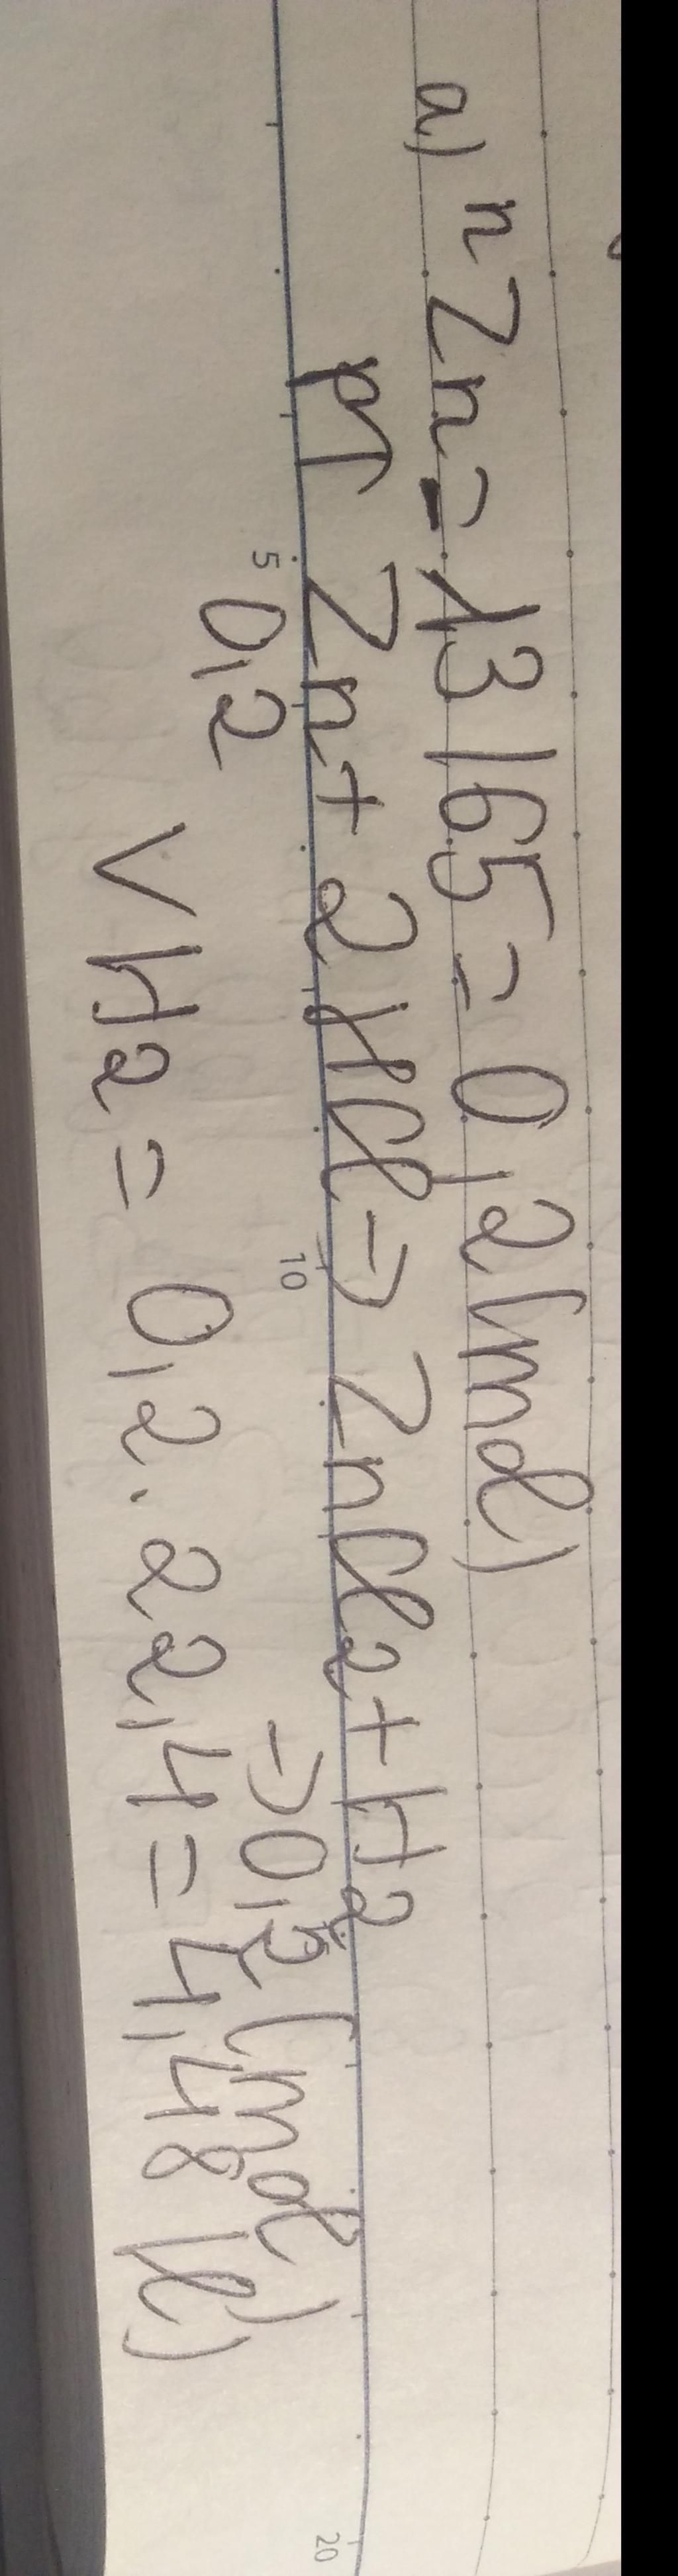 a) nZn = 13/65 = 0,2 (mol)
PT Zn + 2HCl -> ZnCl2 + H2
0,2 -> 0,2 (mol)
VH2 = 0,2 . 22,4 = 4,48 (l)
5
10
20